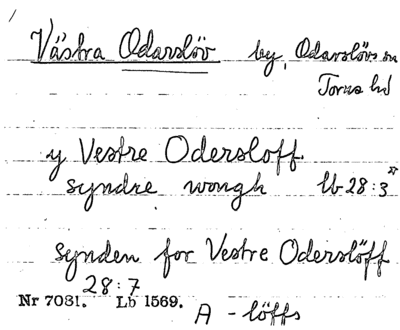 Västra Odarslöv by, Odarslövs sn
Torna hd
y Vestre Odersloff.
syndre wongh lb 28:3
synden for Vestre Oderslöff
28:7
Nr 7031. Lb 1569.
A - löffs